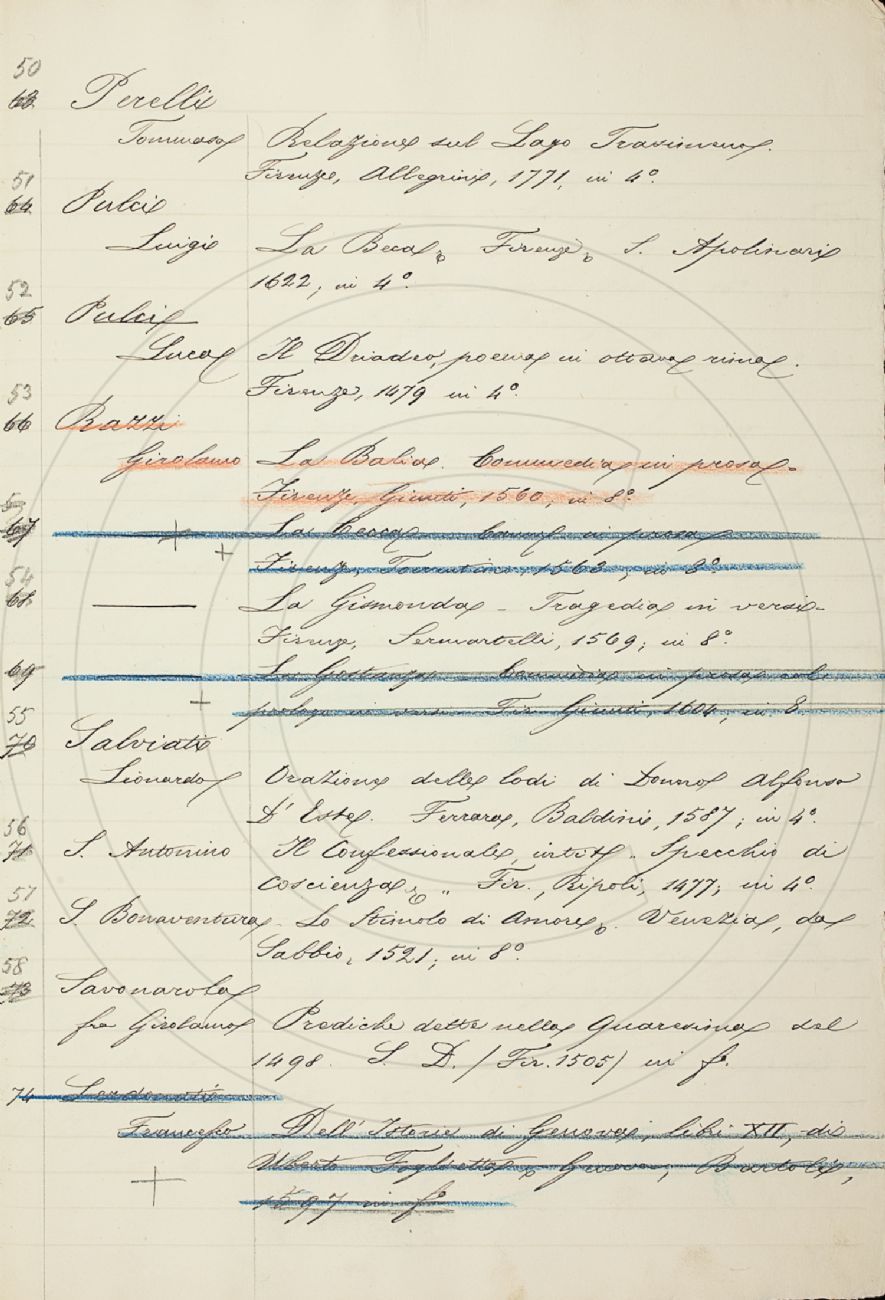 50
63 Perelli
Tommaso Relazione sul Lago Trasimeno.
Firenze, Allegrini, 1771, in 4º.
51
64 Pulci
Luigi La Beca, Firenze, S. Apolinari
1622, in 4º.
52
65 Pulci
Luca Il Driadeo, poema in ottava rima.
Firenze, 1479 in 4º.
53
66 Razzi
Girolamo La Balia. Commedia in prosa.
Firenze, Giunti, 1560, in 8º.
67 La Cecca in prosa
Firenze, Torrentino, in 8º.
54
68 La Gismonda - Tragedia in versi -
Firenze, Sermartelli, 1569; in 8º.
69 La Gostanza. Commedia in prosa col
prologo in versi. Fir. Giunti, 1604, in 8.
55
70 Salviati
Lionardo Orazione delle lodi di Donno Alfonso
D' Este. Ferrara, Baldini, 1587; in 4º.
56
71 S. Antonino Il Confessionale, intit. Specchio di
coscienza, „ Fir., Ripoli, 1477; in 4º.
57
72 S. Bonaventura - Lo Stimolo di Amore, Venezia, da
Sabbio, 1521; in 8º.
58
73 Savonarola
fra Girolamo Prediche dette nella Quaresima del
1498. S. D. (Fir. 1505) in fº.
74 Serdonati
Francesco Dell' Istorie di Genova, libri XII, di
Uberto Foglietta, Genova, Bartoli,
1597 in fº